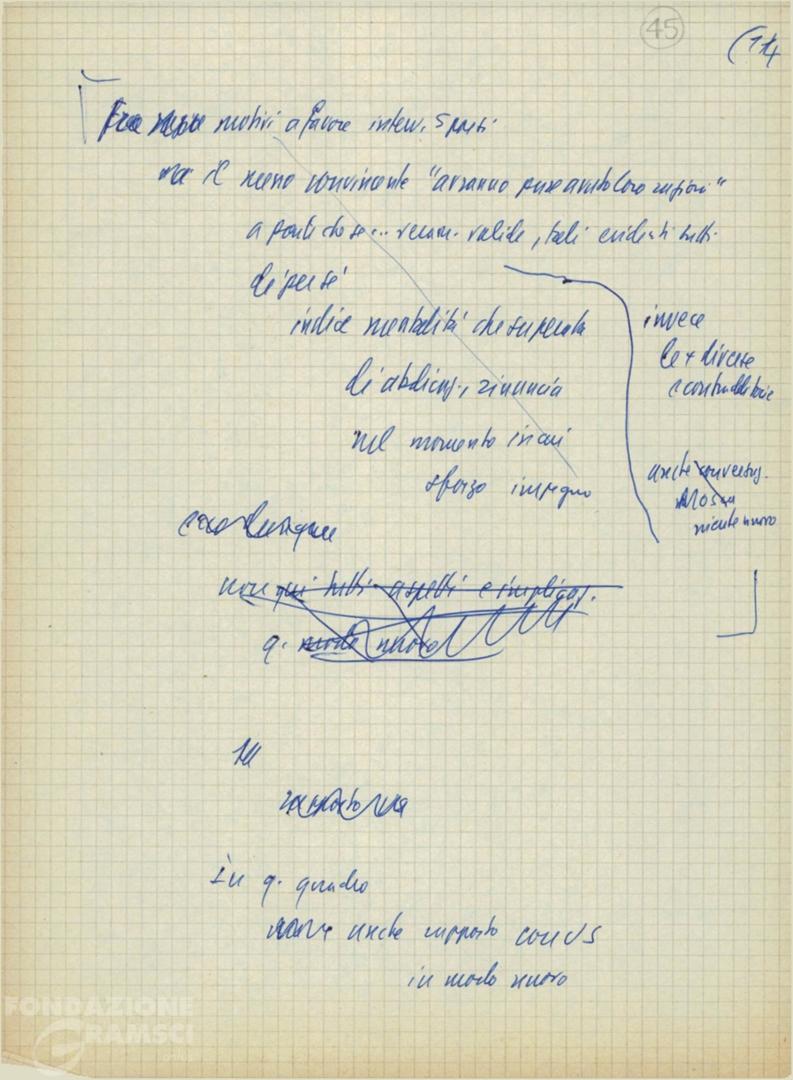 45
(14
motivi a favore interv. 5 paesi
ma il meno convincente "avranno pure avuto loro ragioni"
a parte che se... valide, tali evidenti tutti
di per sé
indice mentalità che superata
di abdicaz., rinuncia
nel momento in cui
sforzo impegno
invece
le + diverse
e contraddittorie
anche conversaz.
Mosca
niente nuovo
non qui tutti aspetti e implicaz.
q. modo nuovo
In q. quadro
anche rapporto con US
in modo nuovo
FONDAZIONE
GRAMSCI